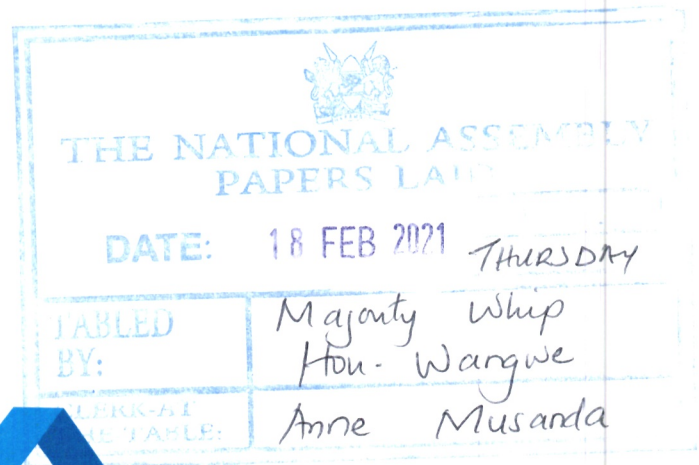 THE NATIONAL ASSEMBLY
PAPERS LAID
DATE: 18 FEB 2021 THURSDAY
TABLED BY: Majority Whip
Hon. Wangwe
CLERK-AT THE-TABLE: Anne Musanda